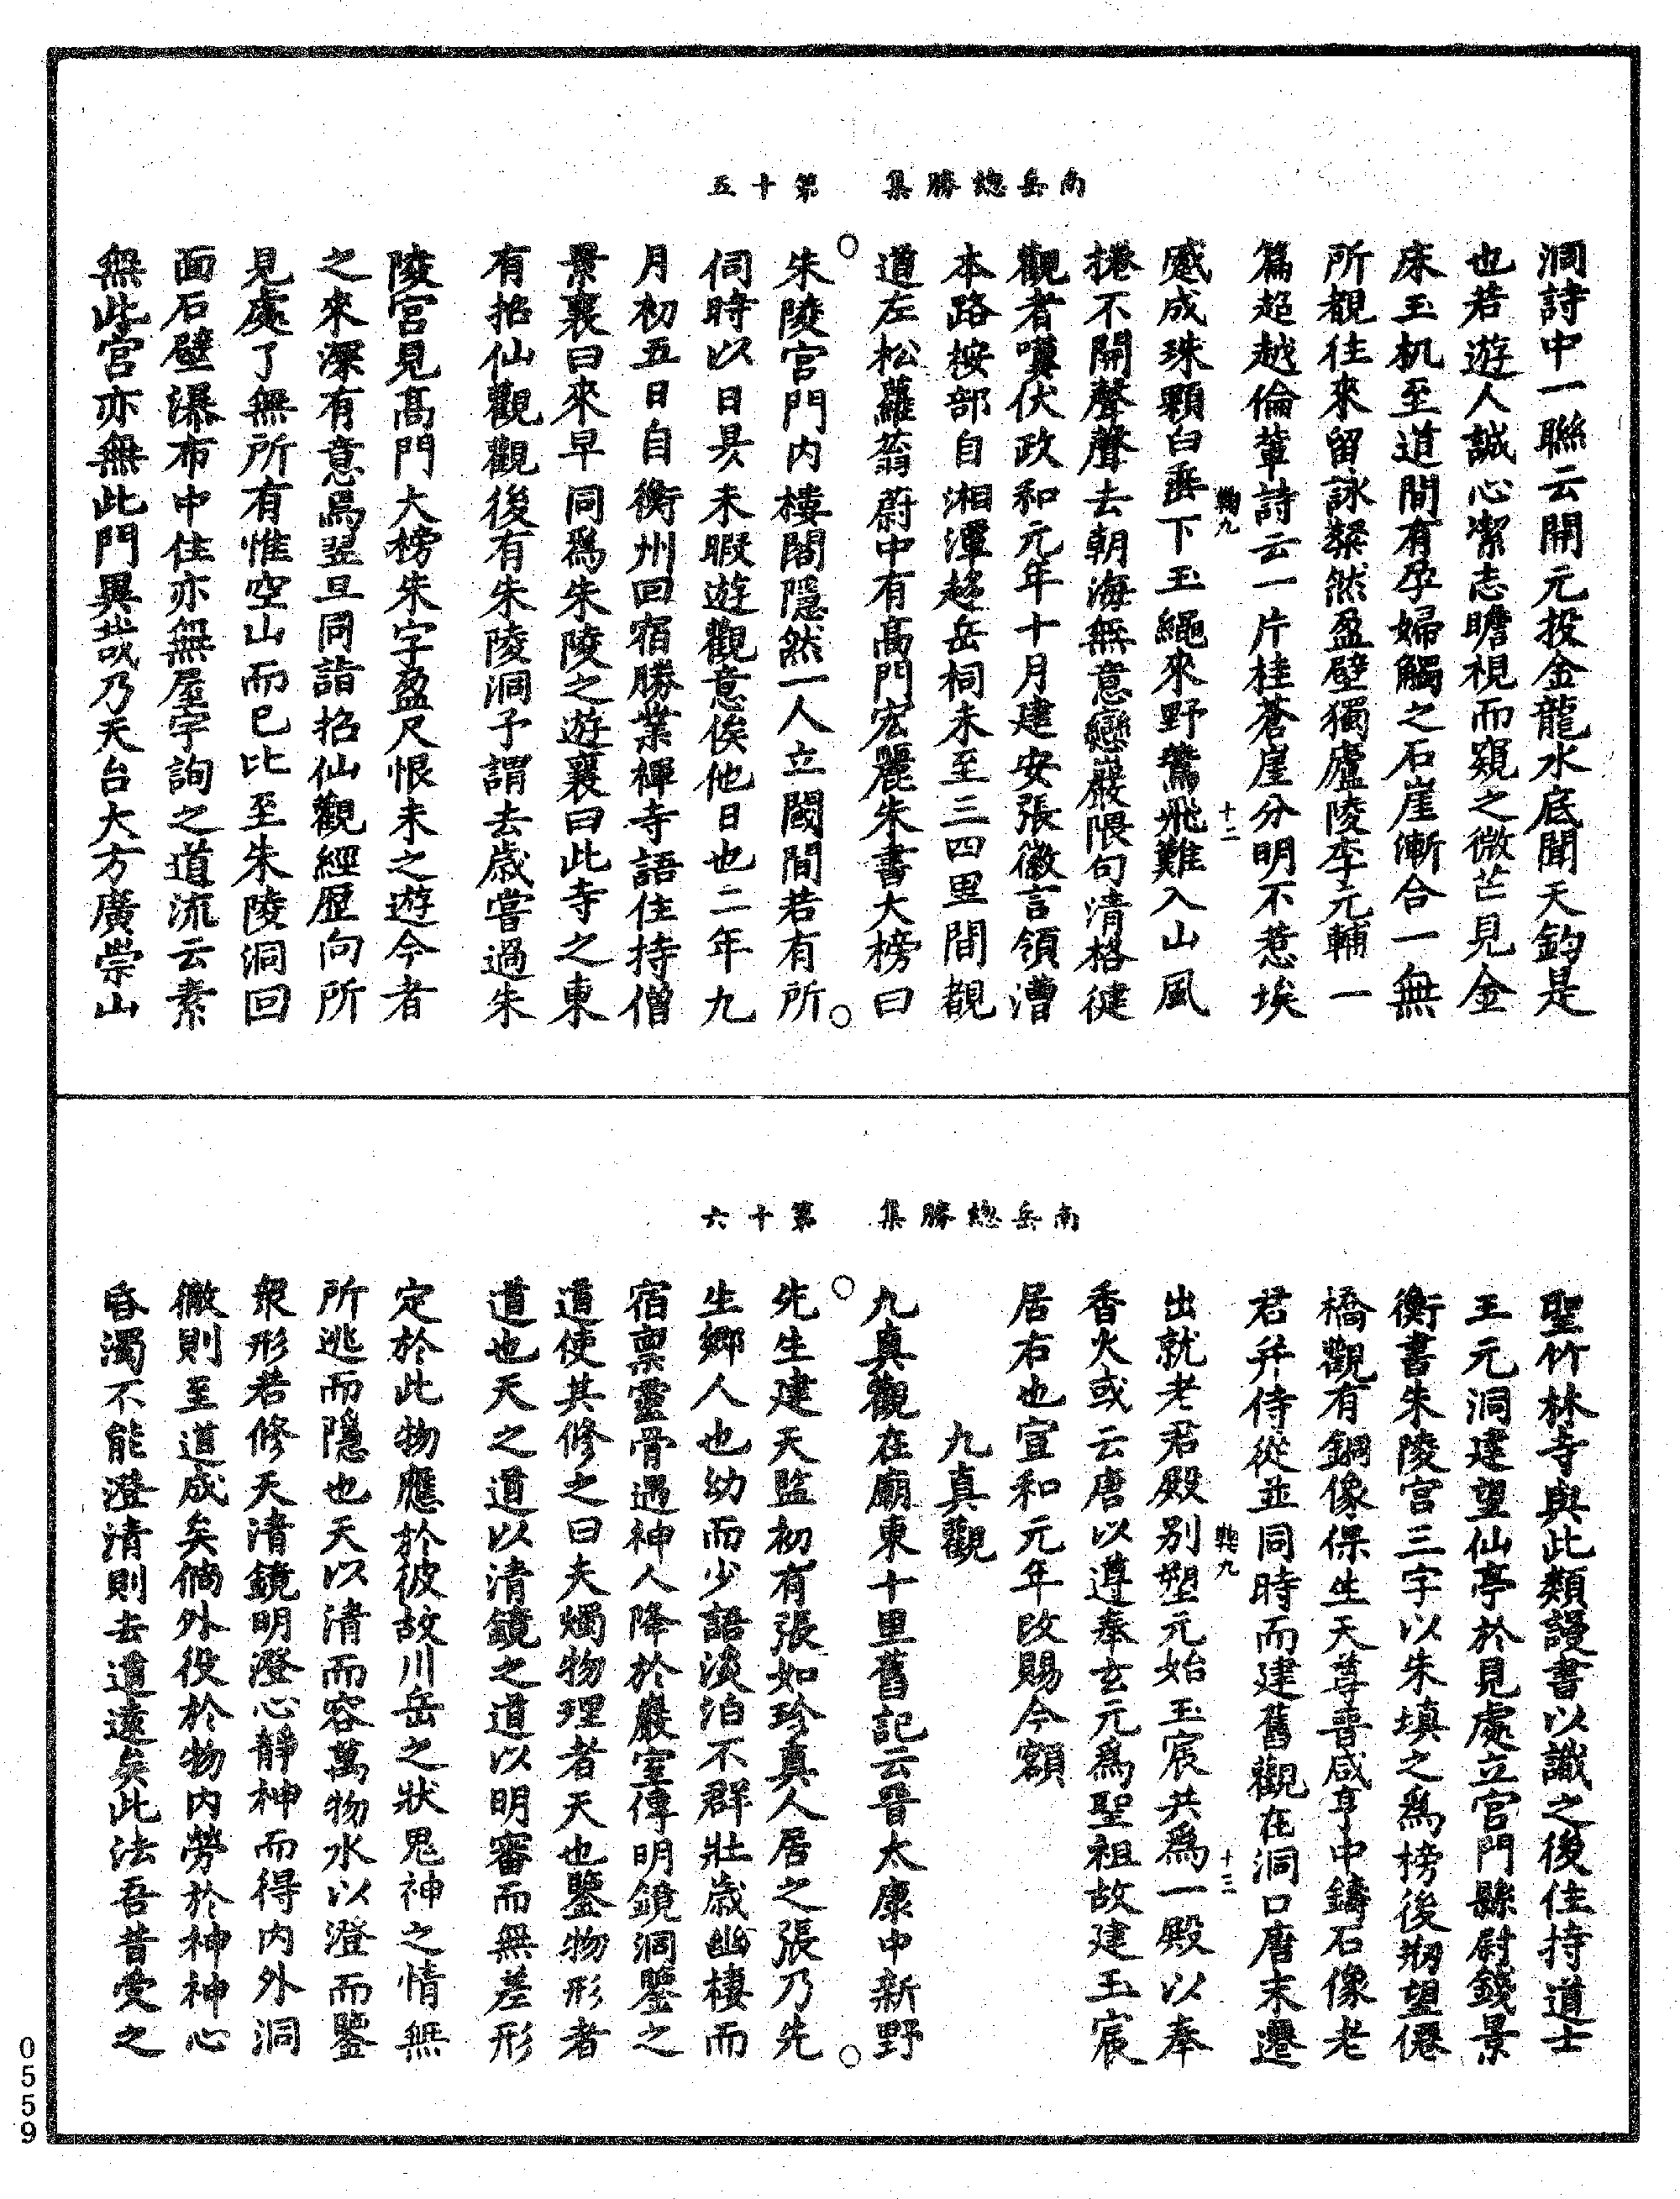 南岳總勝集　第十五
洞詩中一聯云開元投金龍水底聞天鈞是
也若遊人誠心潔志瞻視而窺之微茫見金
床玉机至道間有孕婦觸之石崖漸合一無
所覩往來留詠粲然盈壁獨廬陵李元輔一
篇超越倫輩詩云一片桂蒼崖分明不惹埃
鞠九　十二
蹙成珠顆白垂下玉繩來野鶩飛難入山風
捲不開聲聲去朝海無意戀巖隈句清格健
觀者嘆伏政和元年十月建安張徽言領漕
本路桉部自湘潭趍岳祠未至三四里間覩
道左松蘿蓊蔚中有髙門宏麗朱書大榜曰
朱陵宮門内樓閣隱然一人立閾間若有所
伺時以日昃未暇遊觀意俟他日也二年九
月初五日自衡州回宿勝業禪寺語住持僧
景襄曰來早同爲朱陵之遊襄曰此寺之東
有招仙觀觀後有朱陵洞予謂去歲嘗過朱
陵宮見髙門大榜朱字盈尺恨未之遊今者
之來深有意焉翌旦同詣招仙觀經歷向所
見處了無所有惟空山而已比至朱陵洞回
面石壁瀑布中住亦無屋宇詢之道流云素
無此宮亦無此門異哉乃天台大方廣崇山
南岳總勝集　第十六
聖竹林寺與此類謾書以識之後住持道士
王元洞建望仙亭於見處立宮門縣尉錢景
衡書朱陵宮三字以朱填之爲榜後刱望僊
橋觀有銅像保生天尊晉咸亨中鑄石像老
君并侍從並同時而建舊觀在洞口唐末遷
鞠九　十三
出就老君殿别塑元始玉宸共爲一殿以奉
香火或云唐以遵奉玄元爲聖祖故建玉宸
居右也宣和元年改賜今額
九真觀
九真觀在廟東十里舊記云晉太康中新野
先生建天監初有張如珍真人居之張乃先
生鄉人也幼而少語淡泊不群壯歲幽棲而
宿稟靈骨遇神人降於巖室傳明鏡洞鑒之
道使其修之曰夫燭物理者天也鑒物形者
道也天之道以清鏡之道以明審而無差形
定於此物應於彼故川岳之狀鬼神之情無
所逃而隱也天以清而容萬物水以澄而鑒
衆形若修天清鏡明澄心靜神而得内外洞
徹則至道成矣倘外役於物内勞於神神心
昏濁不能澄清則去道遠矣此法吾昔受之
0559